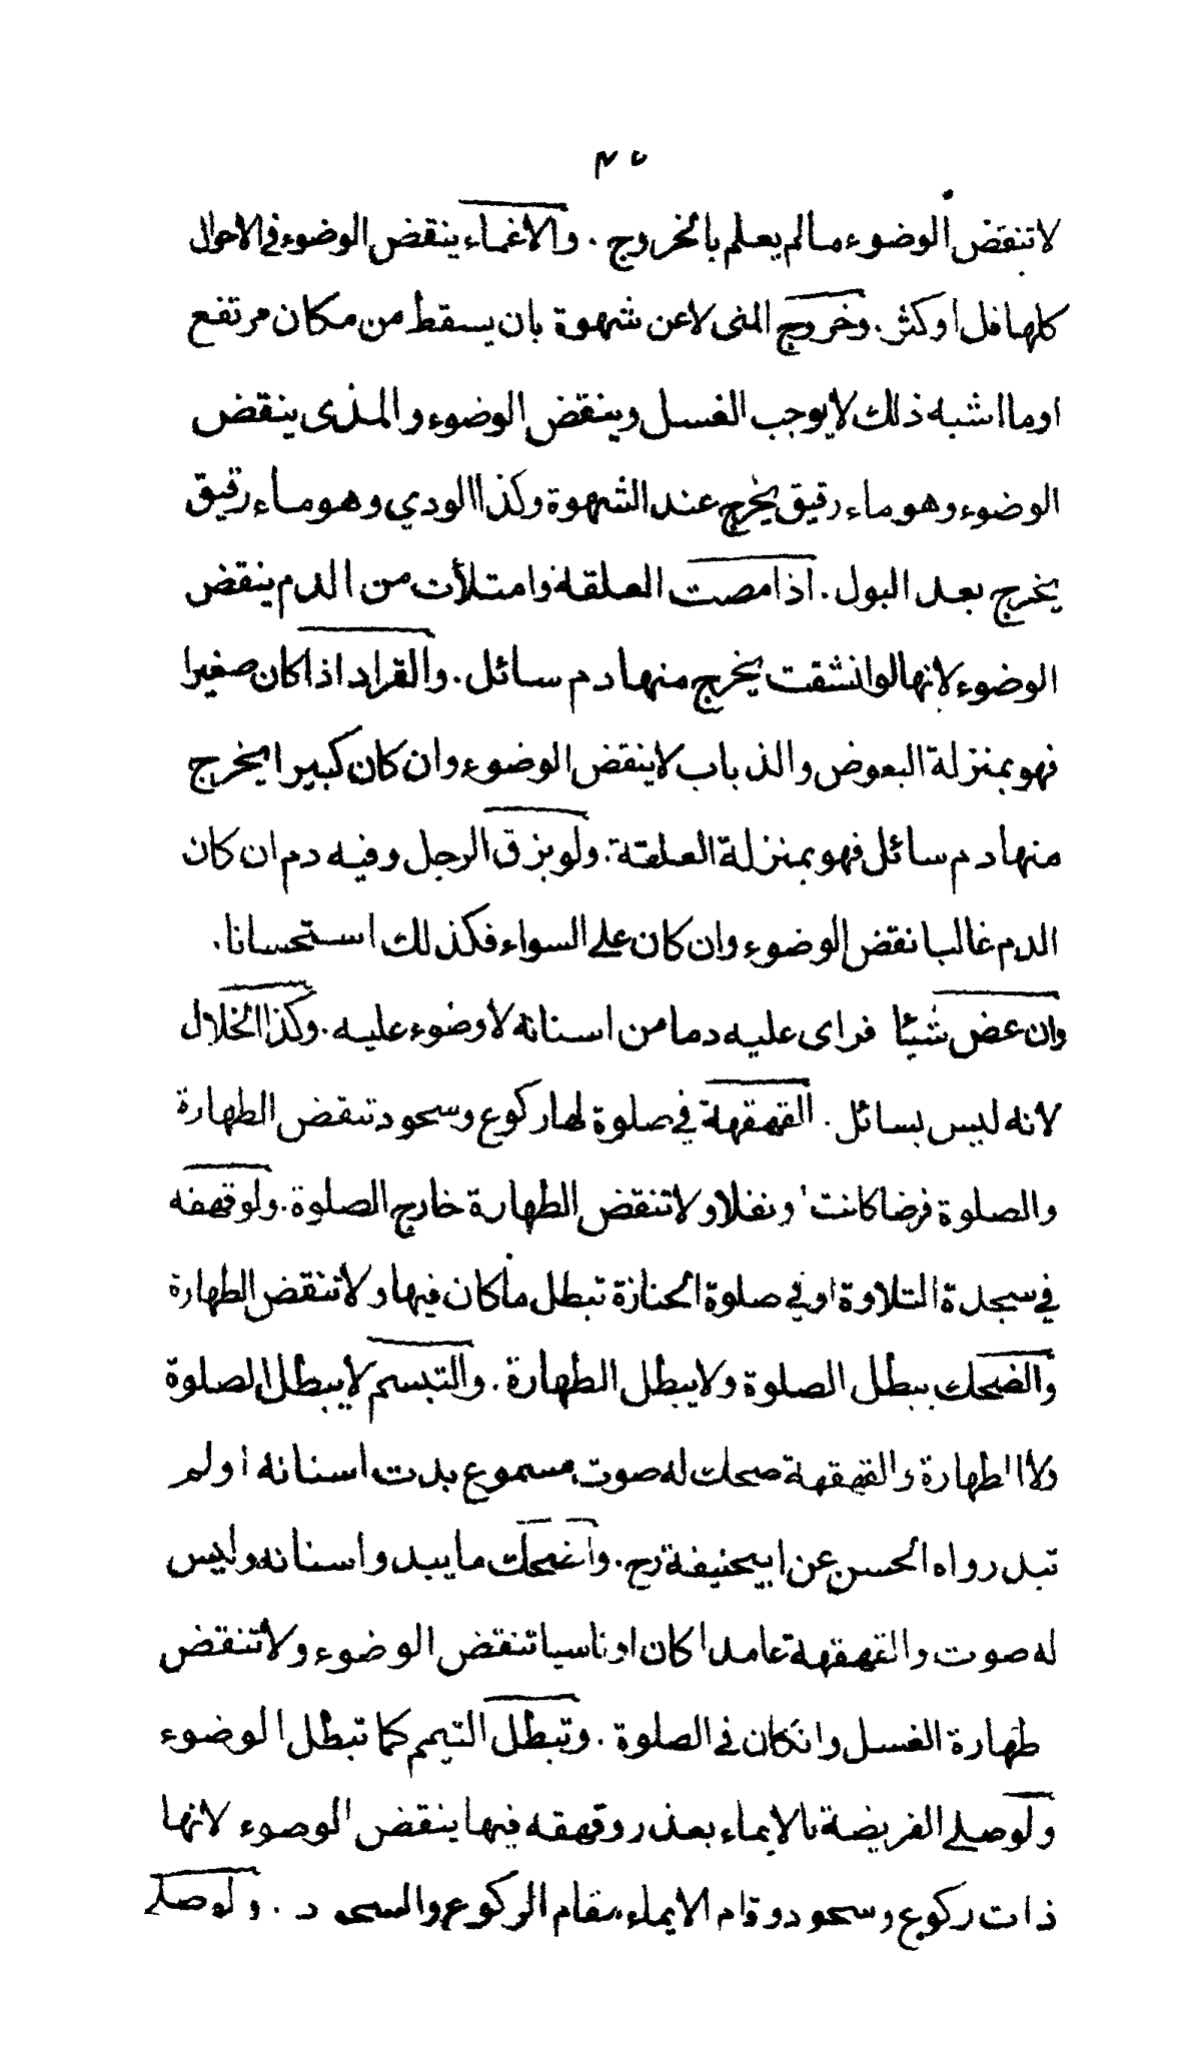 ٢٥
لا تنقض الوضوء مالم يعلم بالخروج . والاغماء ينقض الوضوء فى الاحوال
كلها قل او كثر . وخروج المنى لا عن شهوة بان يسقط من مكان مرتفع
اوما اشبه ذلك لا يوجب الغسل وينقض الوضوء والمذى ينقض
الوضوء وهو ماء رقيق يخرج عند الشهوة وكذا الودي وهو ماء رقيق
يخرج بعد البول . اذا مصت العلقة وامتلأت من الدم ينقض
الوضوء لانها لوانشقت يخرج منها دم سائل . والقراد اذا كان صغيرا
فهو بمنزلة البعوض والذباب لا ينقض الوضوء وان كان كبيرا يخرج
منها دم سائل فهو بمنزلة العلقة . ولو بزق الرجل وفيه دم ان كان
الدم غالبا نقض الوضوء وان كان على السواء فكذلك استحسانا .
وان عض شيئا فراى عليه دما من اسنانه لا وضوء عليه . وكذا الخلال
لانه ليس بسائل . القهقهة في صلوة لها ركوع وسجود تنقض الطهارة
والصلوة فرضا كانت او نفلا ولا تنقض الطهارة خارج الصلوة . ولو قهقه
في سجدة التلاوة او في صلوة الجنازة تبطل ما كان فيها ولا تنقض الطهارة
والضحك يبطل الصلوة ولا يبطل الطهارة . والتبسم لا يبطل الصلوة
ولا الطهارة والقهقهة ضحك له صوت مسموع بدت اسنانه او لم
تبد رواه الحسن عن ابيحنيفة رح . والضحك ما يبدو اسنانه وليس
له صوت والقهقهة عامدا كان او ناسيا تنقض الوضوء ولا تنقض
طهارة الغسل وانكان فى الصلوة . وتبطل التيمم كما تبطل الوضوء
ولو صلى الفريضة بالايماء بعذر وقهقه فيها ينقض الوضوء لانها
ذات ركوع وسجود وقام الايماء مقام الركوع والسجود . ولو صلى